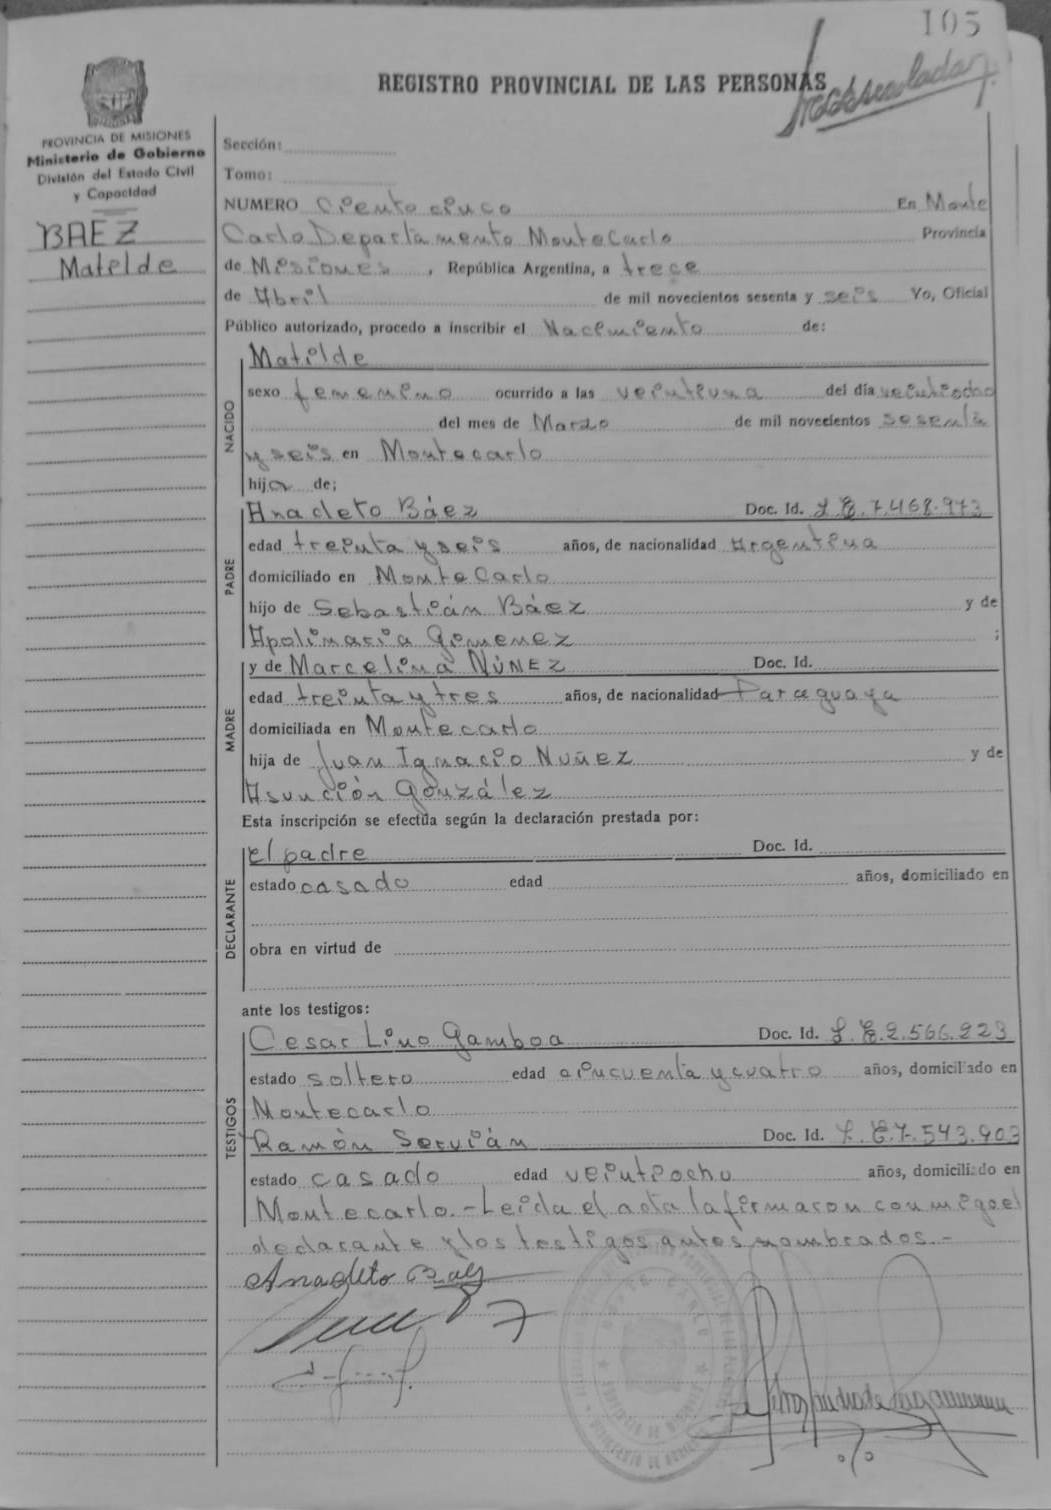 105
REGISTRO PROVINCIAL DE LAS PERSONAS
PROVINCIA DE MISIONES
Ministerio de Gobierno
División del Estado Civil
y Capacidad
BAEZ
Matelde
Sección:
Tomo:
NUMERO Ciento cinco En Monte
Carlo Departamento Montecarlo Provincia
de Misiones, República Argentina, a trece
de Abril de mil novecientos sesenta y seis Yo, Oficial
Público autorizado, procedo a inscribir el Nacimiento de:
NACIDO
Matilde
sexo femenino ocurrido a las veintiuna del día veintiocho
del mes de Marzo de mil novecientos sesenta
y seis en Montecarlo
hija de:
PADRE
Anacleto Báez Doc. Id. L.E. 7.468.973
edad treinta y seis años, de nacionalidad Argentina
domiciliado en Montecarlo
hijo de Sebastián Báez y de
Apolinaria Gimenez ;
MADRE
y de Marcelina NÚÑEZ Doc. Id.
edad treinta y tres años, de nacionalidad Paraguaya
domiciliada en Montecarlo
hija de Juan Ignacio Nuñez y de
Asunción González
Esta inscripción se efectúa según la declaración prestada por:
DECLARANTE
el padre Doc. Id.
estado casado edad años, domiciliado en
obra en virtud de
ante los testigos:
TESTIGOS
Cesar Lino Gamboa Doc. Id. L.E. 2.566.223
estado soltero edad cincuenta y cuatro años, domiciliado en
Montecarlo
Ramón Servián Doc. Id. L.E. 7.543.903
estado casado edad veintiocho años, domiciliado en
Montecarlo.- Leida el acta la firmaron conmigo el
declarante y los testigos antes nombrados.-
Anacleto Baez